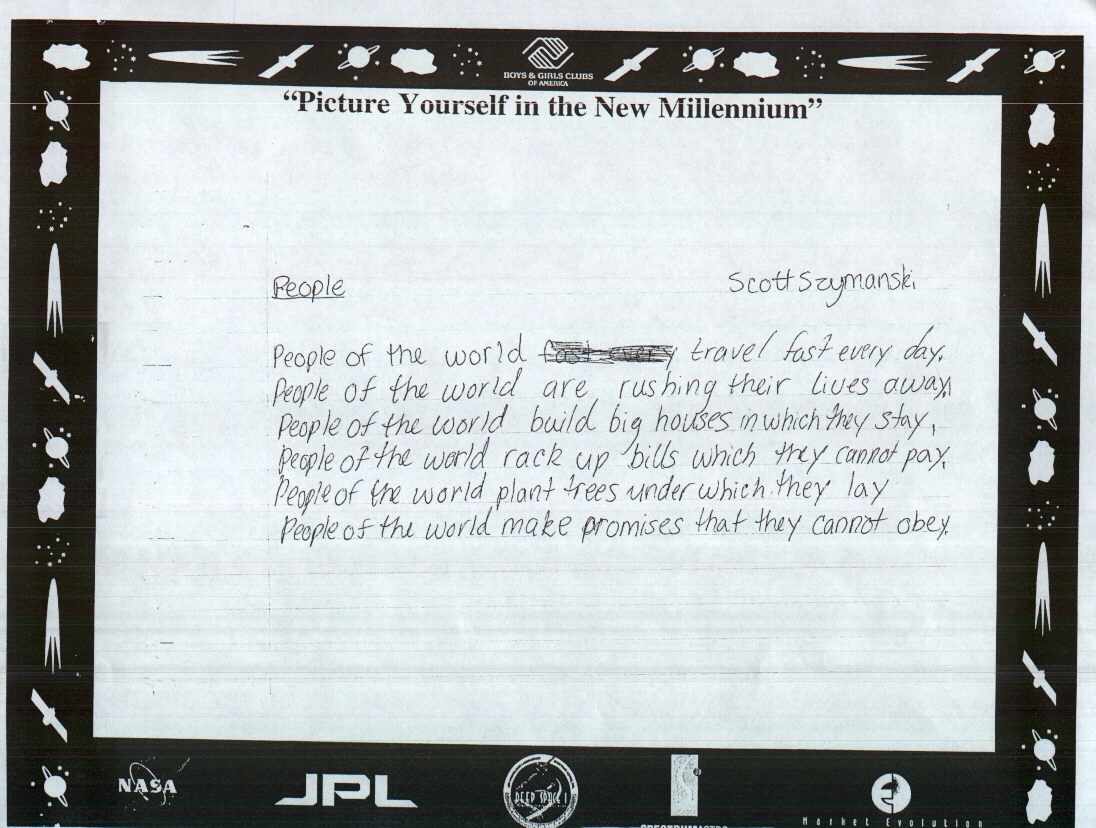 BOYS & GIRLS CLUBS
OF AMERICA
"Picture Yourself in the New Millennium"
People Scott Szymanski
People of the world travel fast every day.
People of the world are rushing their lives away.
People of the world build big houses in which they stay,
People of the world rack up bills which they cannot pay.
People of the world plant trees under which they lay
People of the world make promises that they cannot obey.
NASA JPL DEEP SPACE 1
Market Evolution